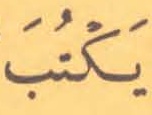 يَكْتُبَ